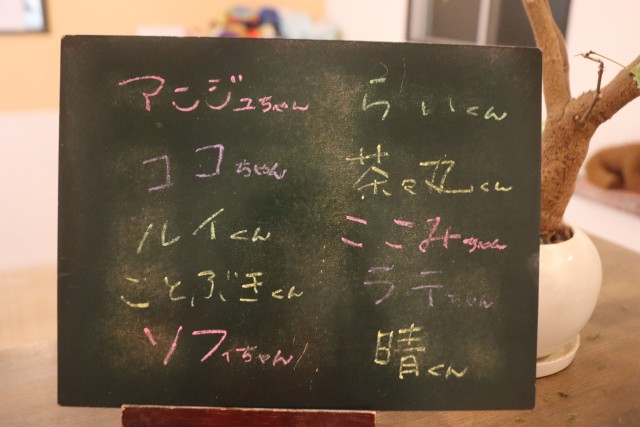 アンジュちゃん
ココちゃん
ルイくん
ことぶきくん
ソフィちゃん
らいくん
茶々丸くん
ここみちゃん
ラテちゃん
晴くん